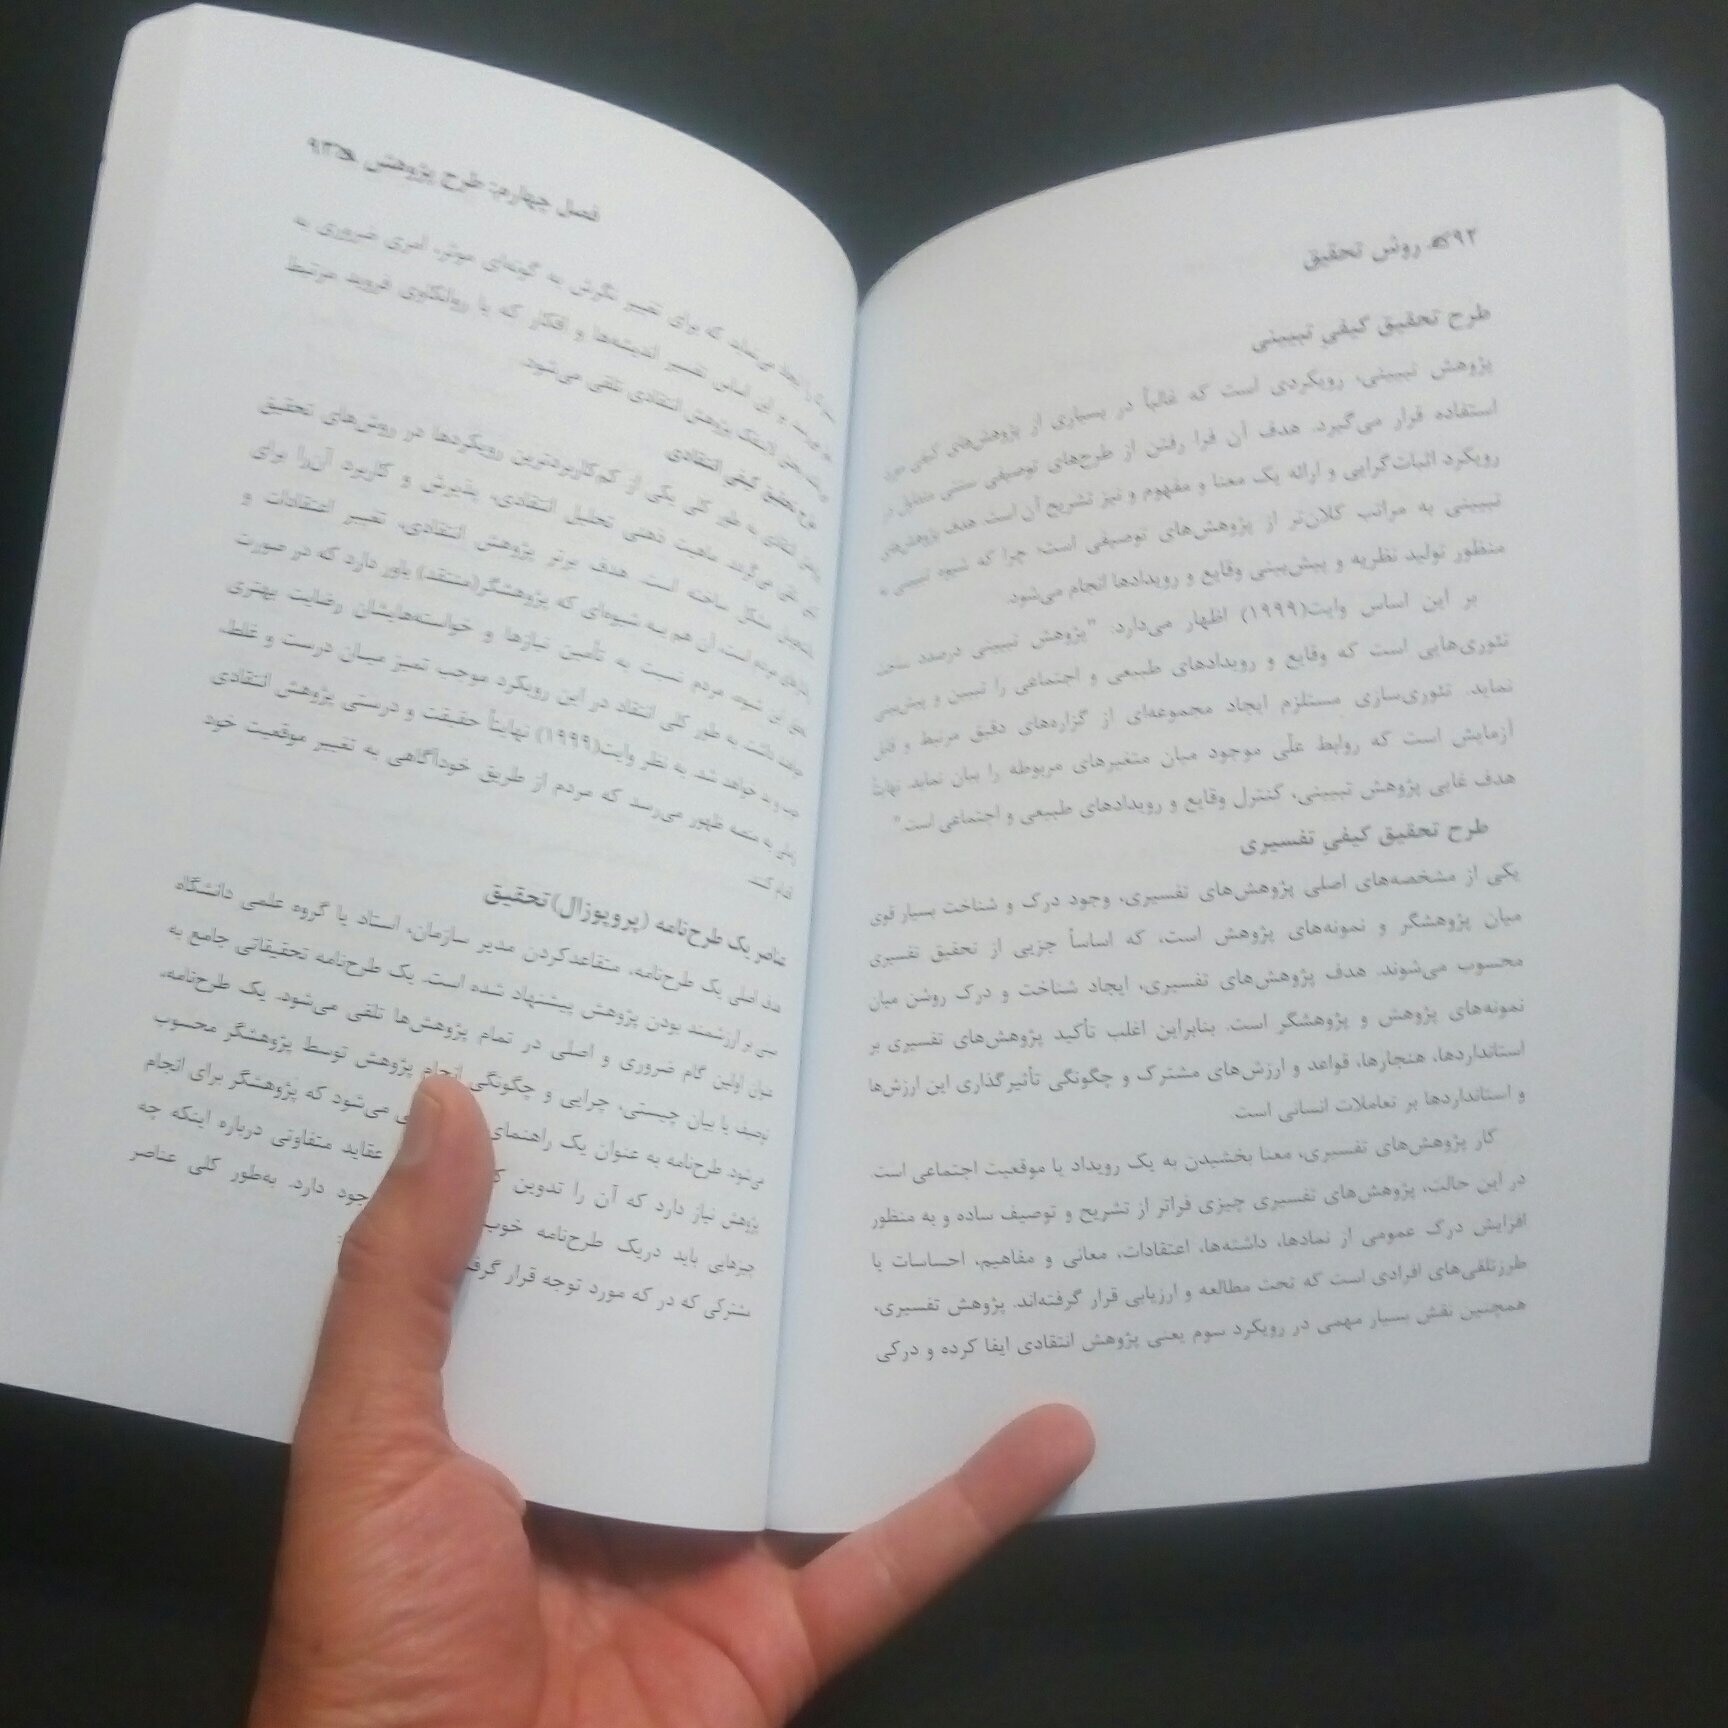 ۹۲ روش تحقیق
طرح تحقیق کیفیِ تبیینی
پژوهش تبیینی، رویکردی است که غالباً در بسیاری از پژوهش‌های کیفی مورد
استفاده قرار می‌گیرد. هدف آن فرا رفتن از طرح‌های توصیفی سنتی متداول در
رویکرد اثبات‌گرایی و ارائه یک معنا و مفهوم و نیز تشریح آن است. هدف پژوهش‌های
تبیینی به مراتب کلان‌تر از پژوهش‌های توصیفی است؛ چرا که شیوه تبیینی به
منظور تولید نظریه و پیش‌بینی وقایع و رویدادها انجام می‌شود.
بر این اساس وایت(۱۹۹۹) اظهار می‌دارد. "پژوهش تبیینی درصدد ساخت
تئوری‌هایی است که وقایع و رویدادهای طبیعی و اجتماعی را تبیین و پیش‌بینی
نماید. تئوری‌سازی مستلزم ایجاد مجموعه‌ای از گزاره‌های دقیق مرتبط و قابل
آزمایش است که روابط علّی موجود میان متغیرهای مربوطه را بیان نماید. نهایتاً
هدف غایی پژوهش تبیینی، کنترل وقایع و رویدادهای طبیعی و اجتماعی است."
طرح تحقیق کیفیِ تفسیری
یکی از مشخصه‌های اصلی پژوهش‌های تفسیری، وجود درک و شناخت بسیار قوی
میان پژوهشگر و نمونه‌های پژوهش است، که اساساً جزیی از تحقیق تفسیری
محسوب می‌شوند. هدف پژوهش‌های تفسیری، ایجاد شناخت و درک روشن میان
نمونه‌های پژوهش و پژوهشگر است. بنابراین اغلب تأکید پژوهش‌های تفسیری بر
استانداردها، هنجارها، قواعد و ارزش‌های مشترک و چگونگی تأثیرگذاری این ارزش‌ها
و استانداردها بر تعاملات انسانی است
کار پژوهش‌های تفسیری، معنا بخشیدن به یک رویداد یا موقعیت اجتماعی است
در این حالت، پژوهش‌های تفسیری چیزی فراتر از تشریح و توصیف ساده و به منظور
افزایش درک عمومی از نمادها، داشته‌ها، اعتقادات، معانی و مفاهیم، احساسات یا
طرزتلقی‌های افرادی است که تحت مطالعه و ارزیابی قرار گرفته‌اند. پژوهش تفسیری،
همچنین نقش بسیار مهمی در رویکرد سوم یعنی پژوهش انتقادی ایفا کرده و درکی
فصل چهارم: طرح پژوهشی ۹۳
را ایجاد می‌نماید که برای تغییر نگرش به گونه‌ای موثر، امری ضروری به
بر این اساس تفسیر اندیشه‌ها و افکار که با روانکاوی فروید مرتبط
لاینفک پژوهش انتقادی تلقی می‌شود.
طرح تحقیق کیفیِ انتقادی
پژوهش انتقادی به طور کلی یکی از کم‌کاربردترین رویکردها در روش‌های تحقیق
تلقی می‌گردد. ماهیت ذهنی تحلیل انتقادی، پذیرش و کاربرد آن‌را برای
مشکل ساخته است. هدف برتر پژوهش انتقادی، تغییر اعتقادات و
مردم است، آن هم به شیوه‌ای که پژوهشگر(منتقد) باور دارد که در صورت
این شیوه، مردم نسبت به تأمین نیازها و خواسته‌هایشان رضایت بهتری
خواهند داشت. به طور کلی انتقاد در این رویکرد موجب تمیز میان درست و غلط،
خوب و بد خواهد شد. به نظر وایت(۱۹۹۹) نهایتاً حقیقت و درستی پژوهش انتقادی
زمانی به منصه ظهور می‌رسد که مردم از طریق خودآگاهی به تغییر موقعیت خود
اقدام کنند.
عناصر یک طرح‌نامه (پروپوزال)تحقیق
هدف اصلی یک طرح‌نامه، متقاعدکردن مدیر سازمان، استاد یا گروه علمی دانشگاه
مبنی بر ارزشمند بودن پژوهش پیشنهاد شده است. یک طرح‌نامه تحقیقاتی جامع به
عنوان اولین گام ضروری و اصلی در تمام پژوهش‌ها تلقی می‌شود. یک طرح‌نامه،
توصیف یا بیان چیستی، چرایی و چگونگی انجام پژوهش توسط پژوهشگر محسوب
می‌شود. طرح‌نامه به عنوان یک راهنمای می‌شود که پژوهشگر برای انجام
پژوهش نیاز دارد که آن را تدوین عقاید متفاوتی درباره اینکه چه
چیزهایی باید دریک طرح‌نامه خوب دارد. به‌طور کلی عناصر
مشترکی که در که مورد توجه قرار